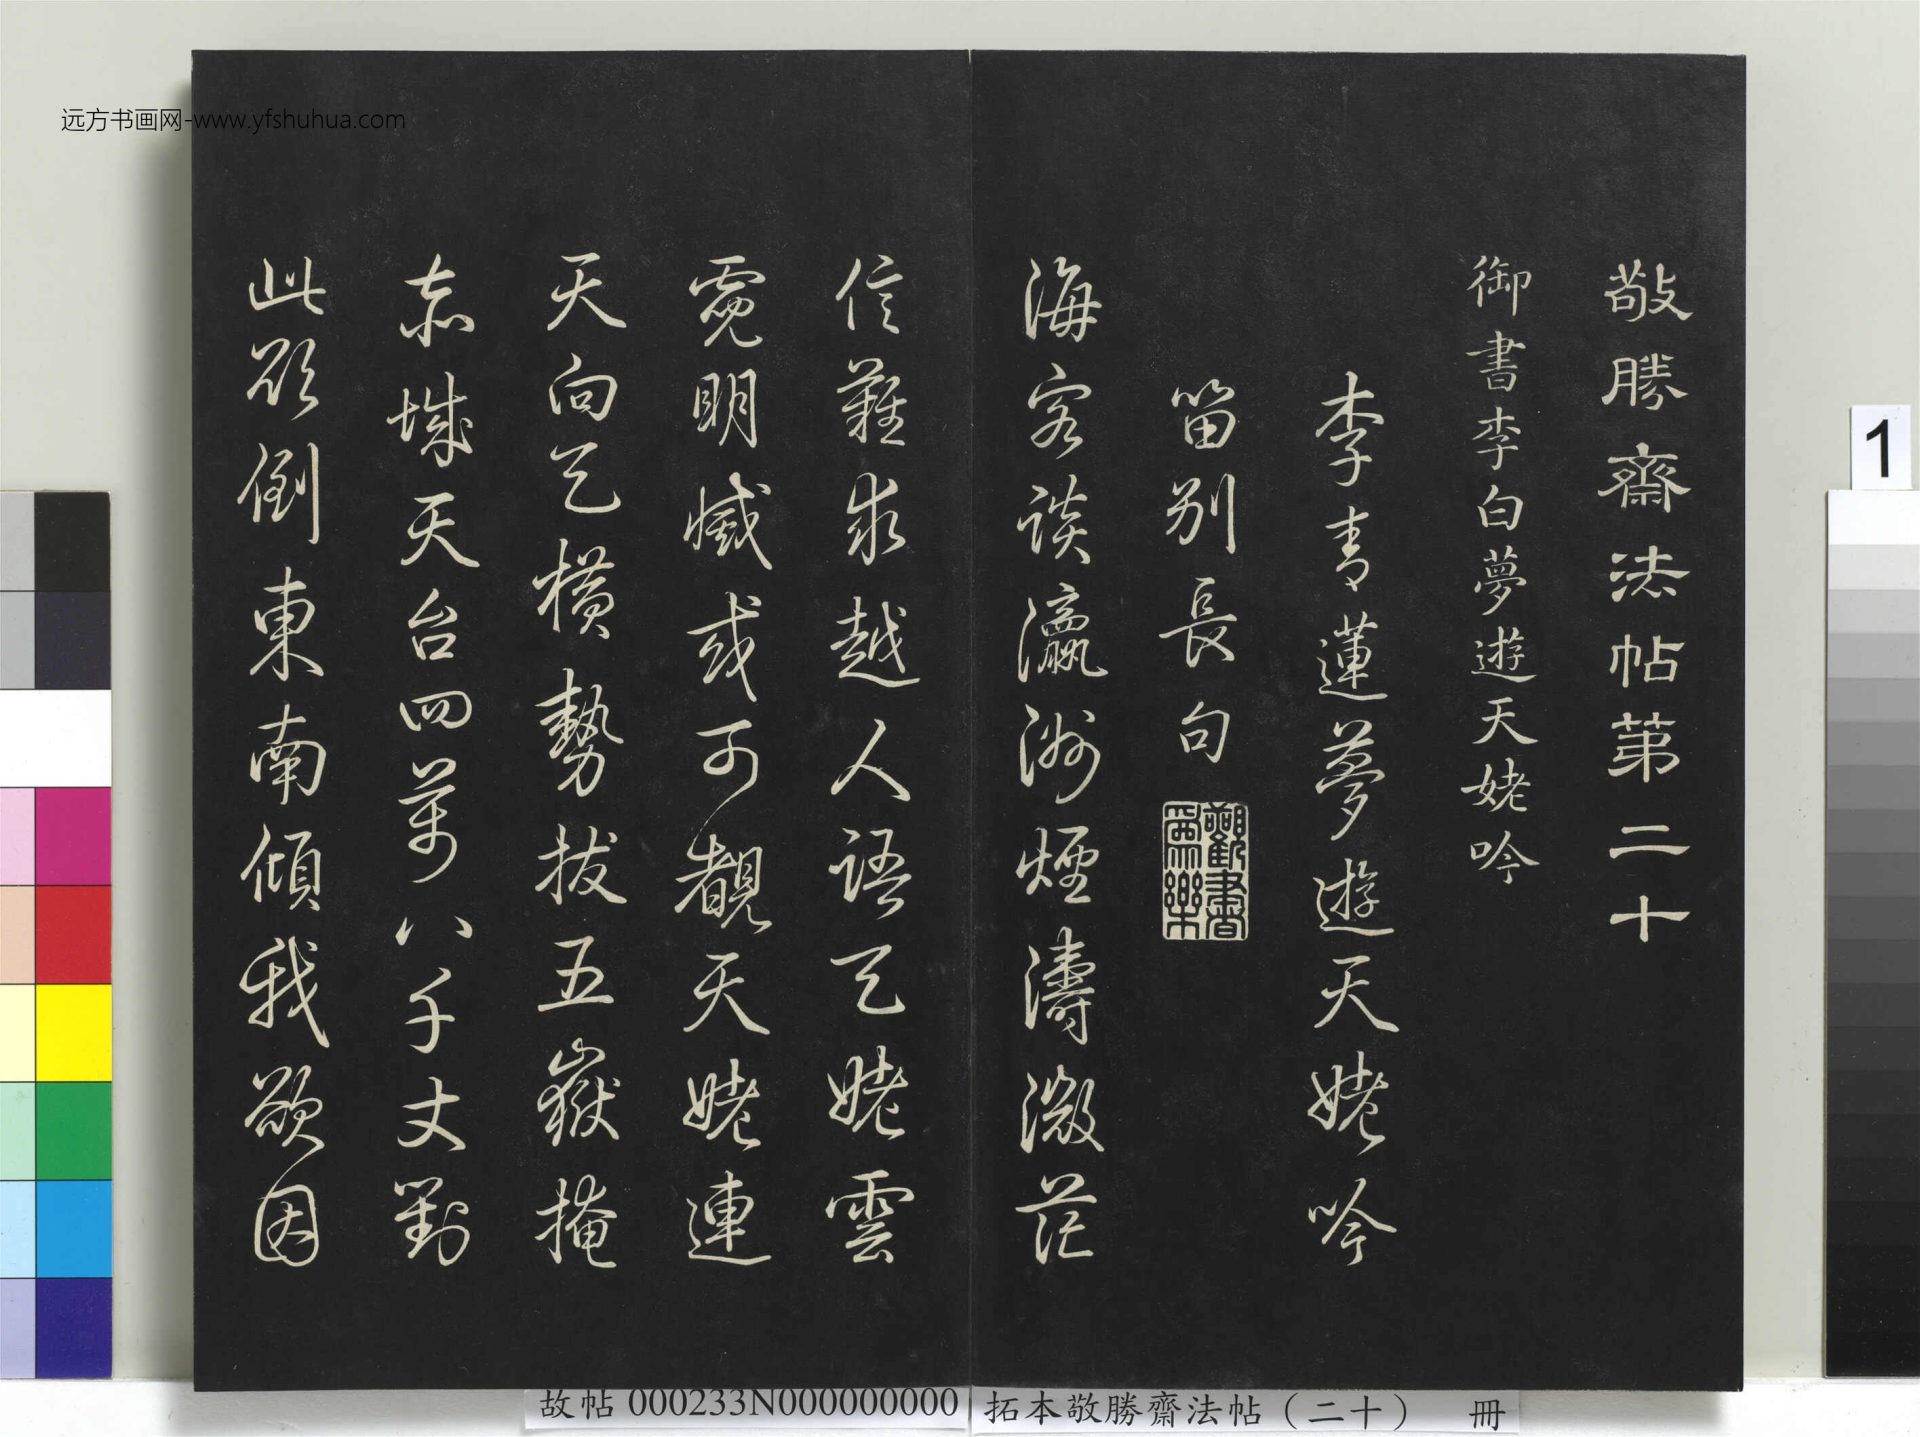 敬勝齋法帖第二十
御書李白夢遊天姥吟
李青蓮夢遊天姥吟
留别長句
觀書為樂
海客談瀛洲煙濤微茫
信難求越人語天姥雲
霓明滅或可覩天姥連
天向天橫勢拔五嶽掩
赤城天台四萬八千丈對
此欲倒東南傾我欲因
远方书画网-www.yfshuhua.com
1
故帖 000233N000000000
拓本敬勝齋法帖（二十） 冊